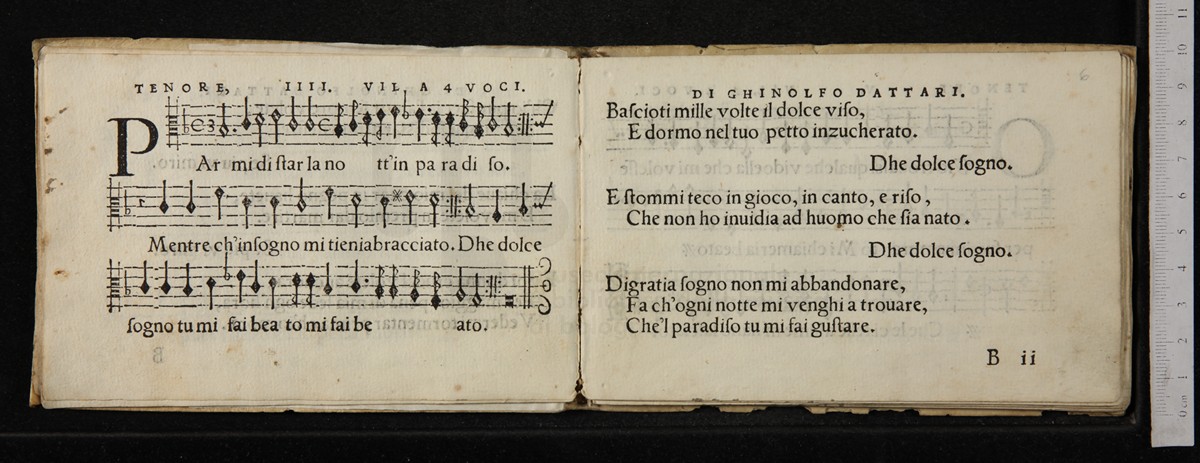 TENORE, IIII. VIL. A 4 VOCI.
PAr mi di ſtar la no tt'in pa ra di ſo.
Mentre ch'inſogno mi tieniabracciato. Dhe dolce
ſogno tu mi fai bea to mi fai be ato.
DI GHINOLFO DATTARI.
Baſcioti mille volte il dolce viſo,
E dormo nel tuo petto inzucherato.
Dhe dolce ſogno.
E ſtommi teco in gioco, in canto, e riſo,
Che non ho inuidia ad huomo che ſia nato.
Dhe dolce ſogno.
Digratia ſogno non mi abbandonare,
Fa ch'ogni notte mi venghi a trouare,
Che'l paradiſo tu mi fai guſtare.
B ii
0 cm 1 2 3 4 5 6 7 8 9 10 11